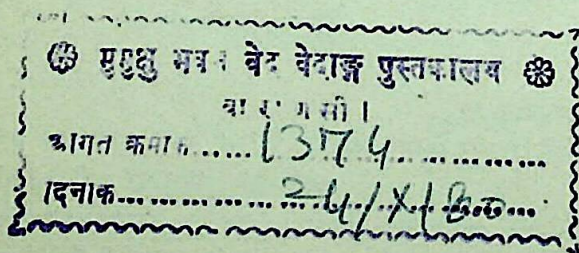 मुमुक्षु भवन वेद वेदाङ्ग पुस्तकालय
वाराणसी ।
आगत क्रमांक......1374................
दिनांक.................24/X/80....